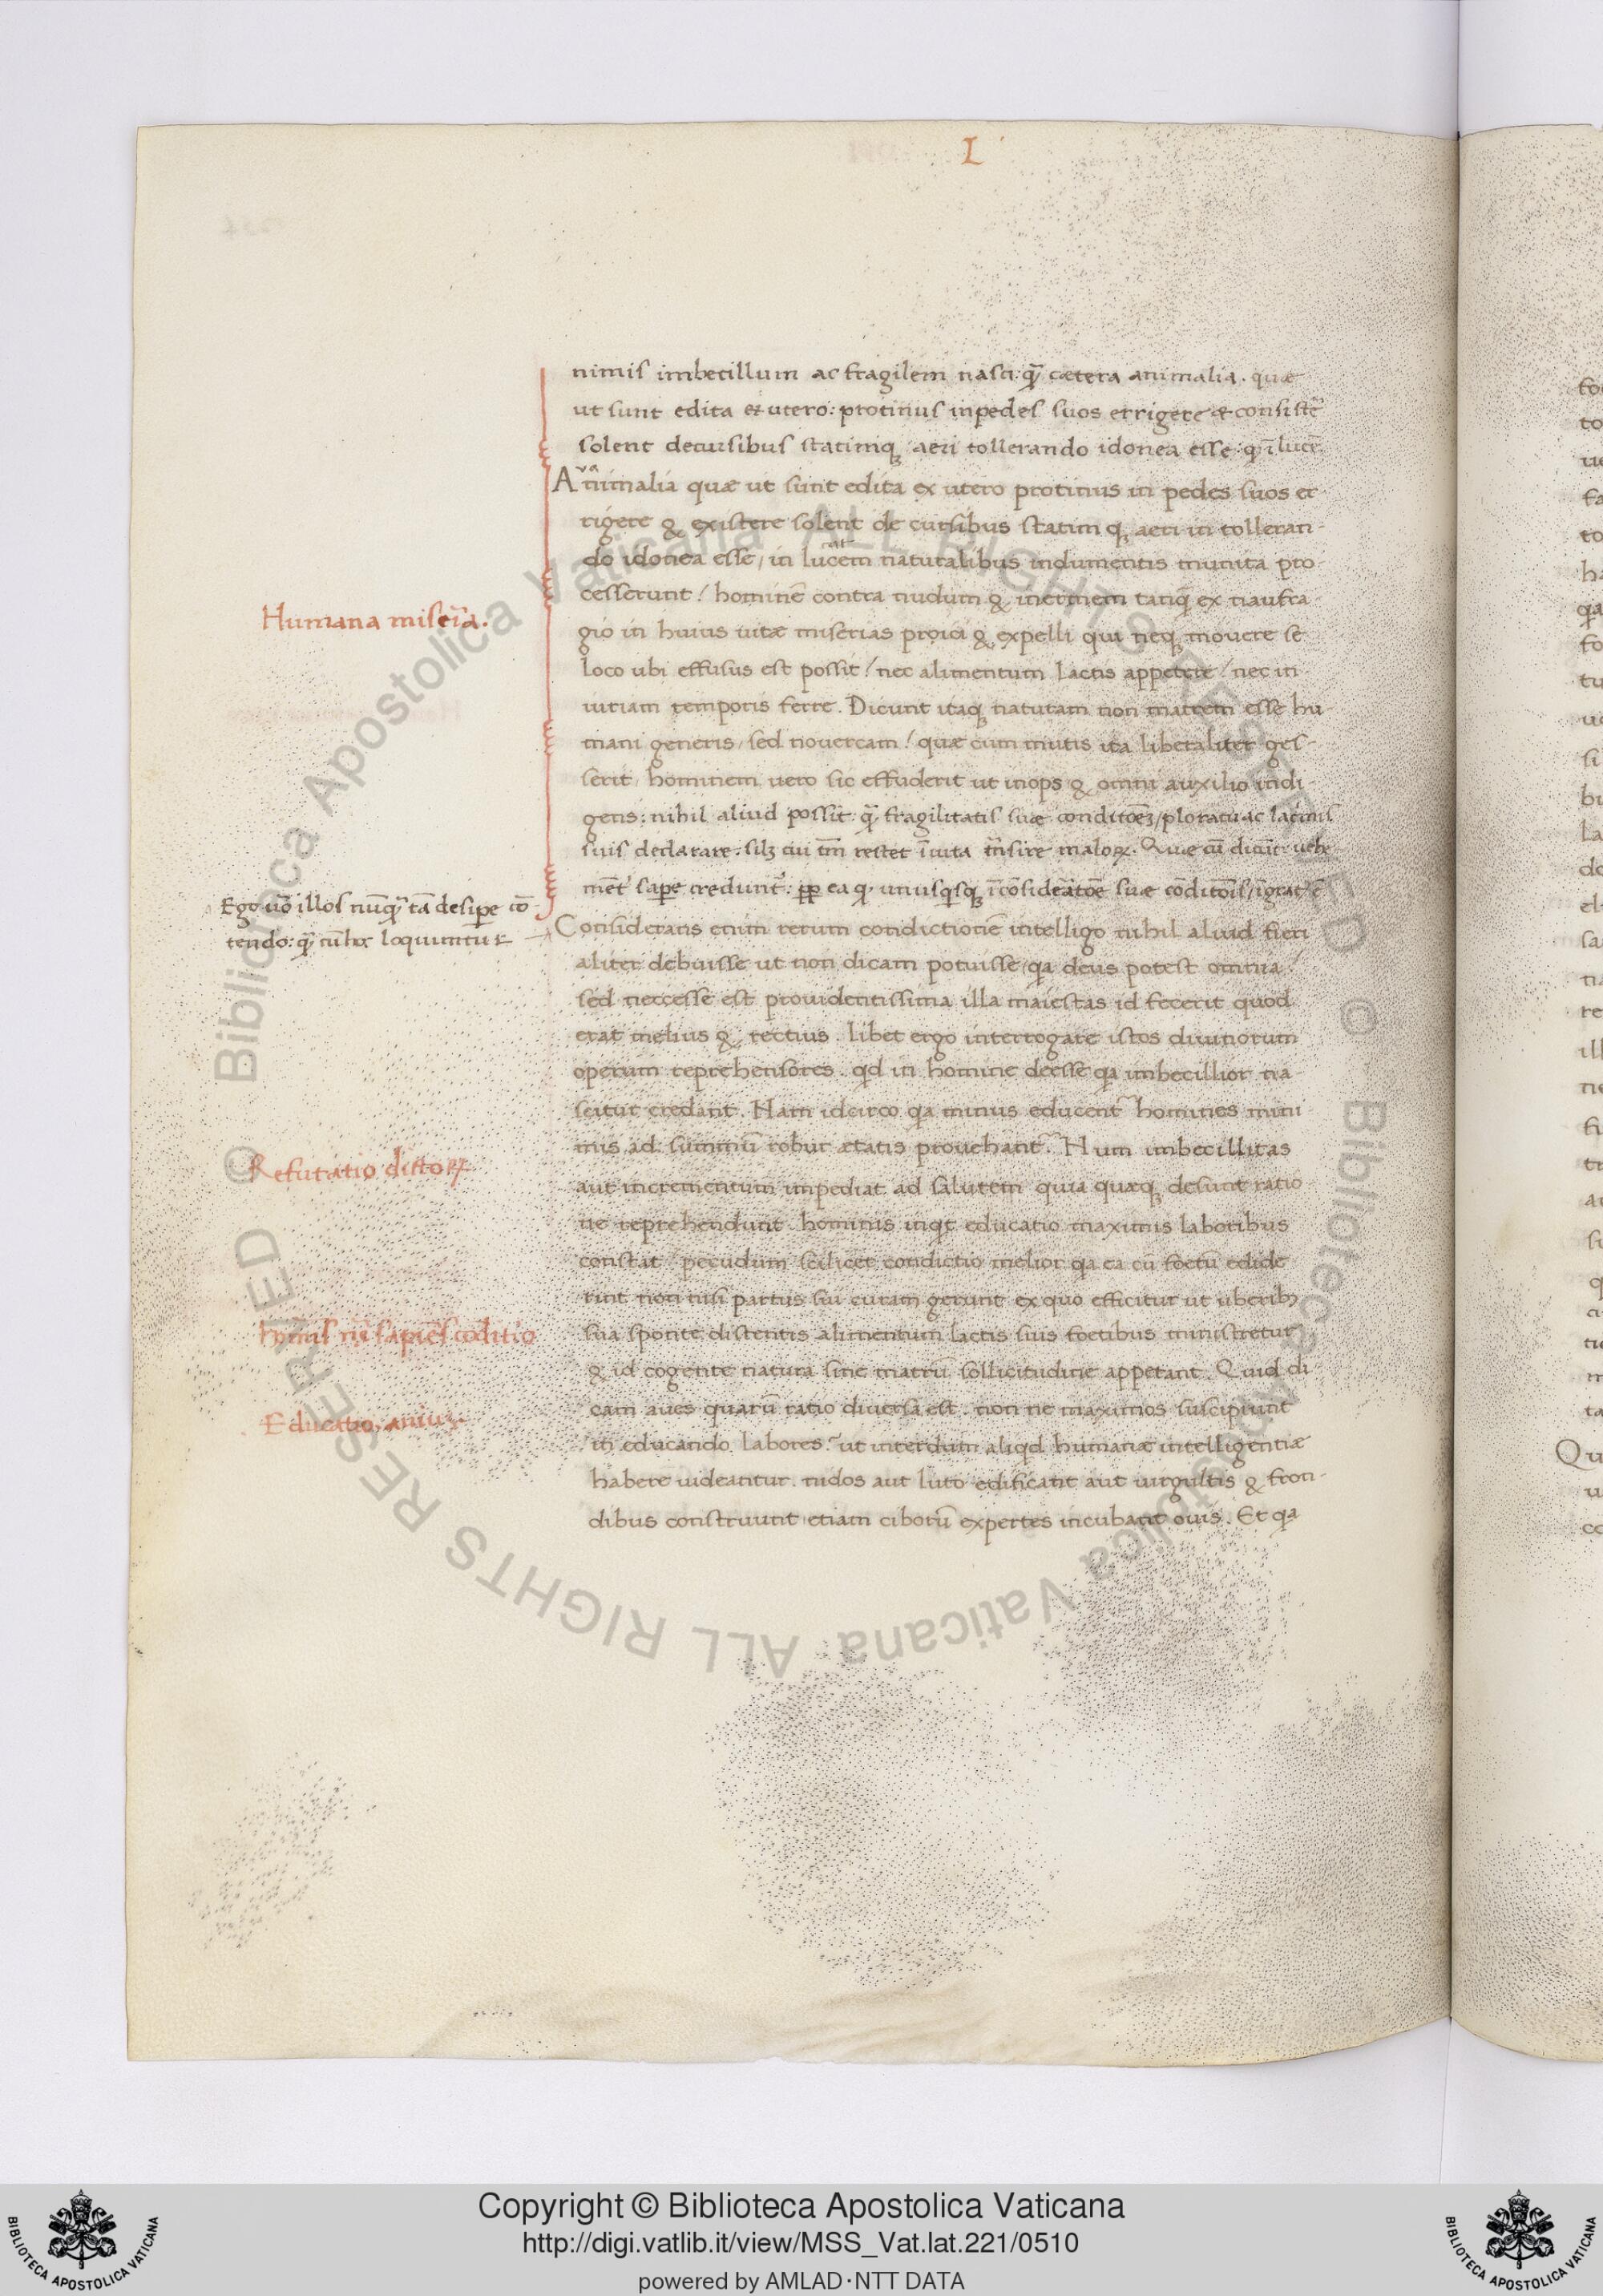 I
nimis imbecillum ac fragilem nasci: q̃ cætera animalia. quæ
ut sunt edita ex utero: protinus inpedes suos errigere & consistẽ
solent decursibus statimq; aeri tollerando idonea esse: q ĩ lucẽ
Animalia quæ ut sunt edita ex utero protinus in pedes suos er
rigere & existere solent de cursibus statim q; aeri in tolleran
do idonea esse, in lucem naturalibus indumentis munita pro
cesserunt / hominẽ contra nudum & inermem tanq̃ ex naufra
gio in huius uitæ miserias proici & expelli qui neq; mouere se
loco ubi effusus est possit / nec alimentum lactis appetere / nec in
iuriam temporis ferre. Dicunt itaq; naturam non matrem esse hu
mani generis, sed nouercam / quæ cum mutis ita liberaliter ges
serit, hominem uero sic effuderit ut inops & omni auxilio indi
gens: nihil aliud possit: q̃ fragilitatis suæ conditõẽ, ploratu ac lacrimis
suis declarare. silꝫ cui tm̃ restet ĩ uita trãsire maloꝝ. Quæ cũ dicũt: uehe
mẽt' sapere credunt': ꝓp ea q unusq̃sq; ĩcõsideratõe suæ cõditõis ĩgrat' ẽ
Considerans enim rerum condictionẽ intelligo nihil aliud fieri
aliter debuisse ut non dicam potuisse, qa deus potest omnia /
sed neccesse est prouidentissima illa maiestas id fecerit quod
erat melius & rectius. libet ergo interrogare istos diuinorum
operum reprehensores. qd in homine deesse qa imbecillior na
scitur credant. Nam idcirco qa minus educent' homines mini
mis ad summũ robur ætatis prouehant'. Num imbecillitas
aut incrementum impediat ad salutem quia quæq; desunt ratio
ne reprehendunt. hominis inqt educatio maximis laboribus
constat / pecudum scilicet condictio melior qa ea cũ foetũ edide
rint non nisi partus sui curam gerunt ex quo efficitur ut uberibꝫ
sua sponte distentis alimentum lactis suis foetibus ministretur
& id cogente natura sine matrũ sollicitudine appetant. Quid di
cam aues quarũ ratio diuersa est. non ne maximos suscipiunt
in educando labores? ut interdum aliqd humanæ intelligentiæ
habere uideantur. nidos aut luto edificant aut uirgultis & fron
dibus construunt, etiam ciborũ expertes incubant ouis. Et qa
Humana miseria.
Ego uõ illos nũq̃ tã desipe cõ
tendo: q̃ cũ hoc loquuntur
Refutatio dictoꝝ
Educatio auiuꝫ
Copyright © Biblioteca Apostolica Vaticana
http://digi.vatlib.it/view/MSS_Vat.lat.221/0510
powered by AMLAD·NTT DATA
BIBLIOTECA APOSTOLICA VATICANA
BIBLIOTECA APOSTOLICA VATICANA
© Biblioteca Apostolica Vaticana ALL RIGHTS RESERVED © Biblioteca Apostolica Vaticana ALL RIGHTS RESERVED